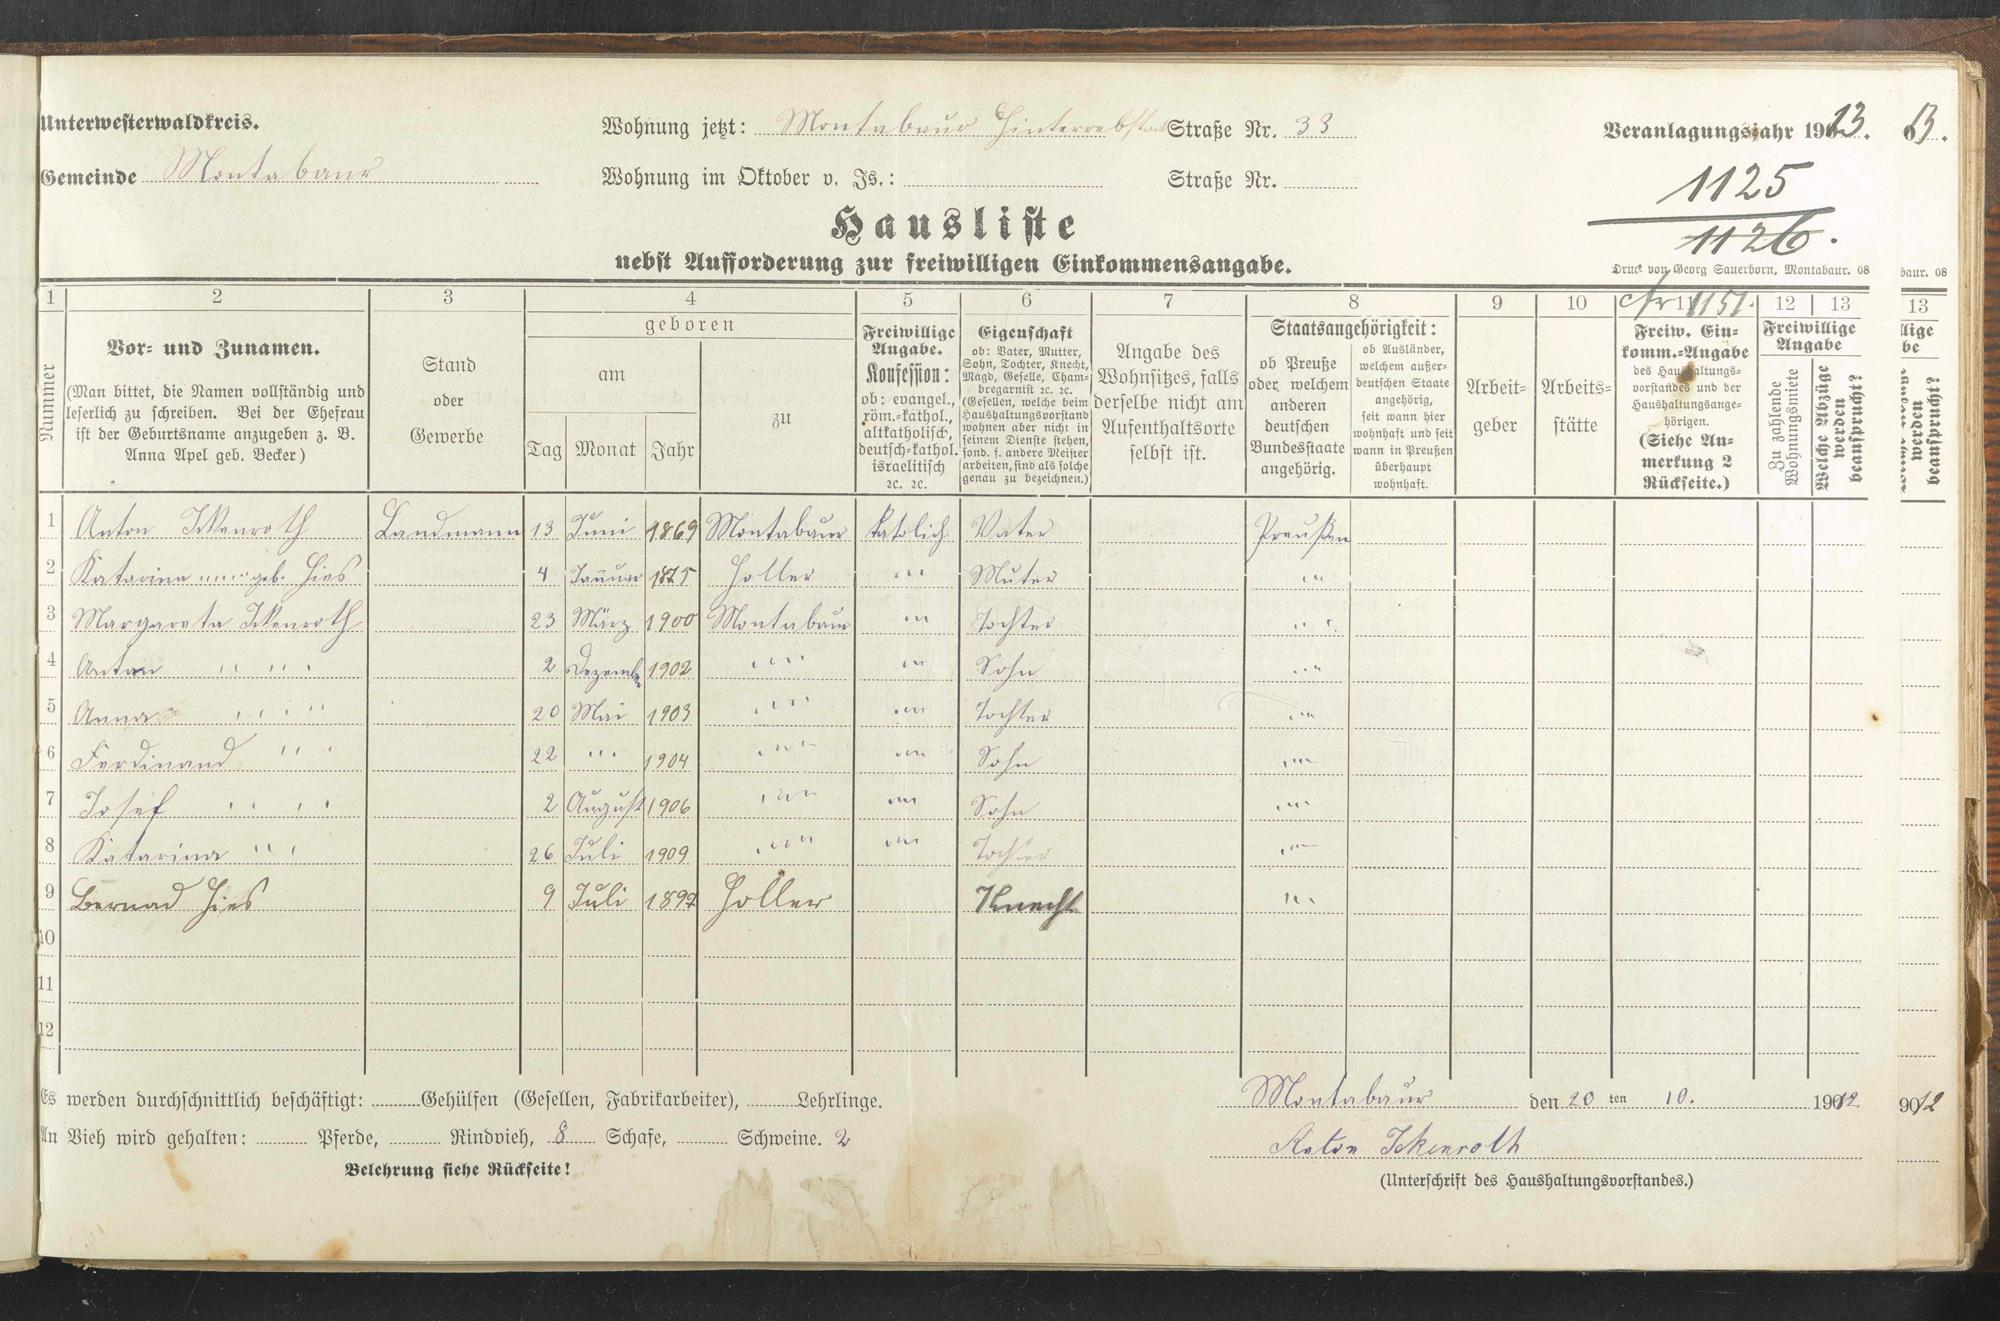 Unterwesterwaldkreis.
Wohnung jetzt: Montabaur Straße Nr. 33
Veranlagungsjahr 1913.
13.
Gemeinde Montabaur
Wohnung im Oktober v. Js.: Straße Nr.
1125
1126.
Hausliste
nebst Aufforderung zur freiwilligen Einkommensangabe.
Druck von Georg Sauerborn, Montabaur. 08
baur. 08
1 2 3 4 5 6 7 8 9 10 11 12 13
13
cfr 1151.
Nummer
Vor- und Zunamen.
(Man bittet, die Namen vollständig und
leserlich zu schreiben. Bei der Ehefrau
ist der Geburtsname anzugeben z. B.
Anna Apel geb. Becker)
Stand
oder
Gewerbe
geboren
am
Tag Monat Jahr
zu
Freiwillige
Angabe.
Konfession:
ob: evangel.,
röm.-kathol.,
altkatholisch,
deutsch-kathol.
israelitisch
2c. 2c.
Eigenschaft
ob: Vater, Mutter,
Sohn, Tochter, Knecht,
Magd, Geselle, Cham-
bregarnist 2c. 2c.
(Gesellen, welche beim
Haushaltungsvorstand
wohnen aber nicht in
seinem Dienste stehen,
sond. f. andere Meister
arbeiten, sind als solche
genau zu bezeichnen.)
Angabe des
Wohnsitzes, falls
derselbe nicht am
Aufenthaltsorte
selbst ist.
Staatsangehörigkeit:
ob Preuße
oder welchem
anderen
deutschen
Bundesstaate
angehörig.
ob Ausländer,
welchem außer-
deutschen Staate
angehörig,
seit wann hier
wohnhaft und seit
wann in Preußen
überhaupt
wohnhaft.
Arbeit-
geber
Arbeits-
stätte
Freiw. Ein-
komm.-Angabe
des Haushaltungs-
vorstandes und der
Haushaltungsange-
hörigen.
(Siehe An-
merkung 2
Rückseite.)
Freiwillige
Angabe
Zu zahlende
Wohnungsmiete
Welche Abzüge
werden
beansprucht?
lige
be
werden
beansprucht?
1 Anton Ickenroth Landmann 13 Juni 1869 Montabaur katolich Vater Preußen
2 Katarina " " geb. Hies 4 Januar 1875 Holler " " Muter " "
3 Margareta Ickenroth 23 März 1900 Montabaur " " Tochter " "
4 Anton " " 2 Dezember 1902 " " " " Sohn " "
5 Anna " " 20 Mai 1903 " " " " Tochter " "
6 Ferdinand " " 22 " " 1904 " " " " Sohn " "
7 Josef " " 2 August 1906 " " " " Sohn " "
8 Katarina " " 26 Juli 1909 " " " " Tochter " "
9 Bernad Hies 9 Juli 1897 Holler Knecht " "
10
11
12
Es werden durchschnittlich beschäftigt: Gehülfen (Gesellen, Fabrikarbeiter), Lehrlinge.
Montabaur den 20 ten 10. 1912
9012
An Vieh wird gehalten: Pferde, Rindvieh, 8 Schafe, Schweine. 2
Anton Ickenroth
Belehrung siehe Rückseite!
(Unterschrift des Haushaltungsvorstandes.)